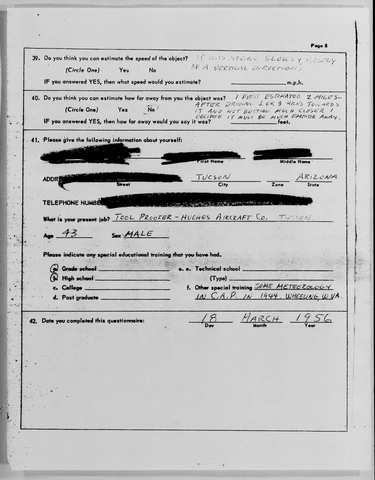 Page 8
39. Do you think you can estimate the speed of the object? IT WAS MOVING SLOWLY
(Circle One) Yes No IN A VERTICAL DIRECTION
IF you answered YES, then what speed would you estimate? m.p.h.
40. Do you think you can estimate how far away from you the object was? I FIRST ESTIMATED 2 MILES-
(Circle One) Yes No AFTER DRIVING 2 OR 3 MILES TOWARDS
IT AND NOT GETTING MUCH CLOSER I
IF you answered YES, then how far away would you say it was? DECIDED IT MUST BE MUCH FARTHER AWAY. feet.
41. Please give the following information about yourself:
First Name Middle Name
ADDRE TUCSON ARIZONA
Street City Zone State
TELEPHONE NUMBE
What is your present job? TOOL PROOFER - HUGHES AIRCRAFT CO. TUCSON
Age 43 Sex MALE
Please indicate any special educational training that you have had.
a. Grade school e. e. Technical school
b. High school (Type)
c. College f. Other special training SOME METEOROLOGY
d. Post graduate IN C.A.P. IN 1944. WHEELING, W.VA.
42. Date you completed this questionnaire: 18 MARCH 1956
Day Month Year